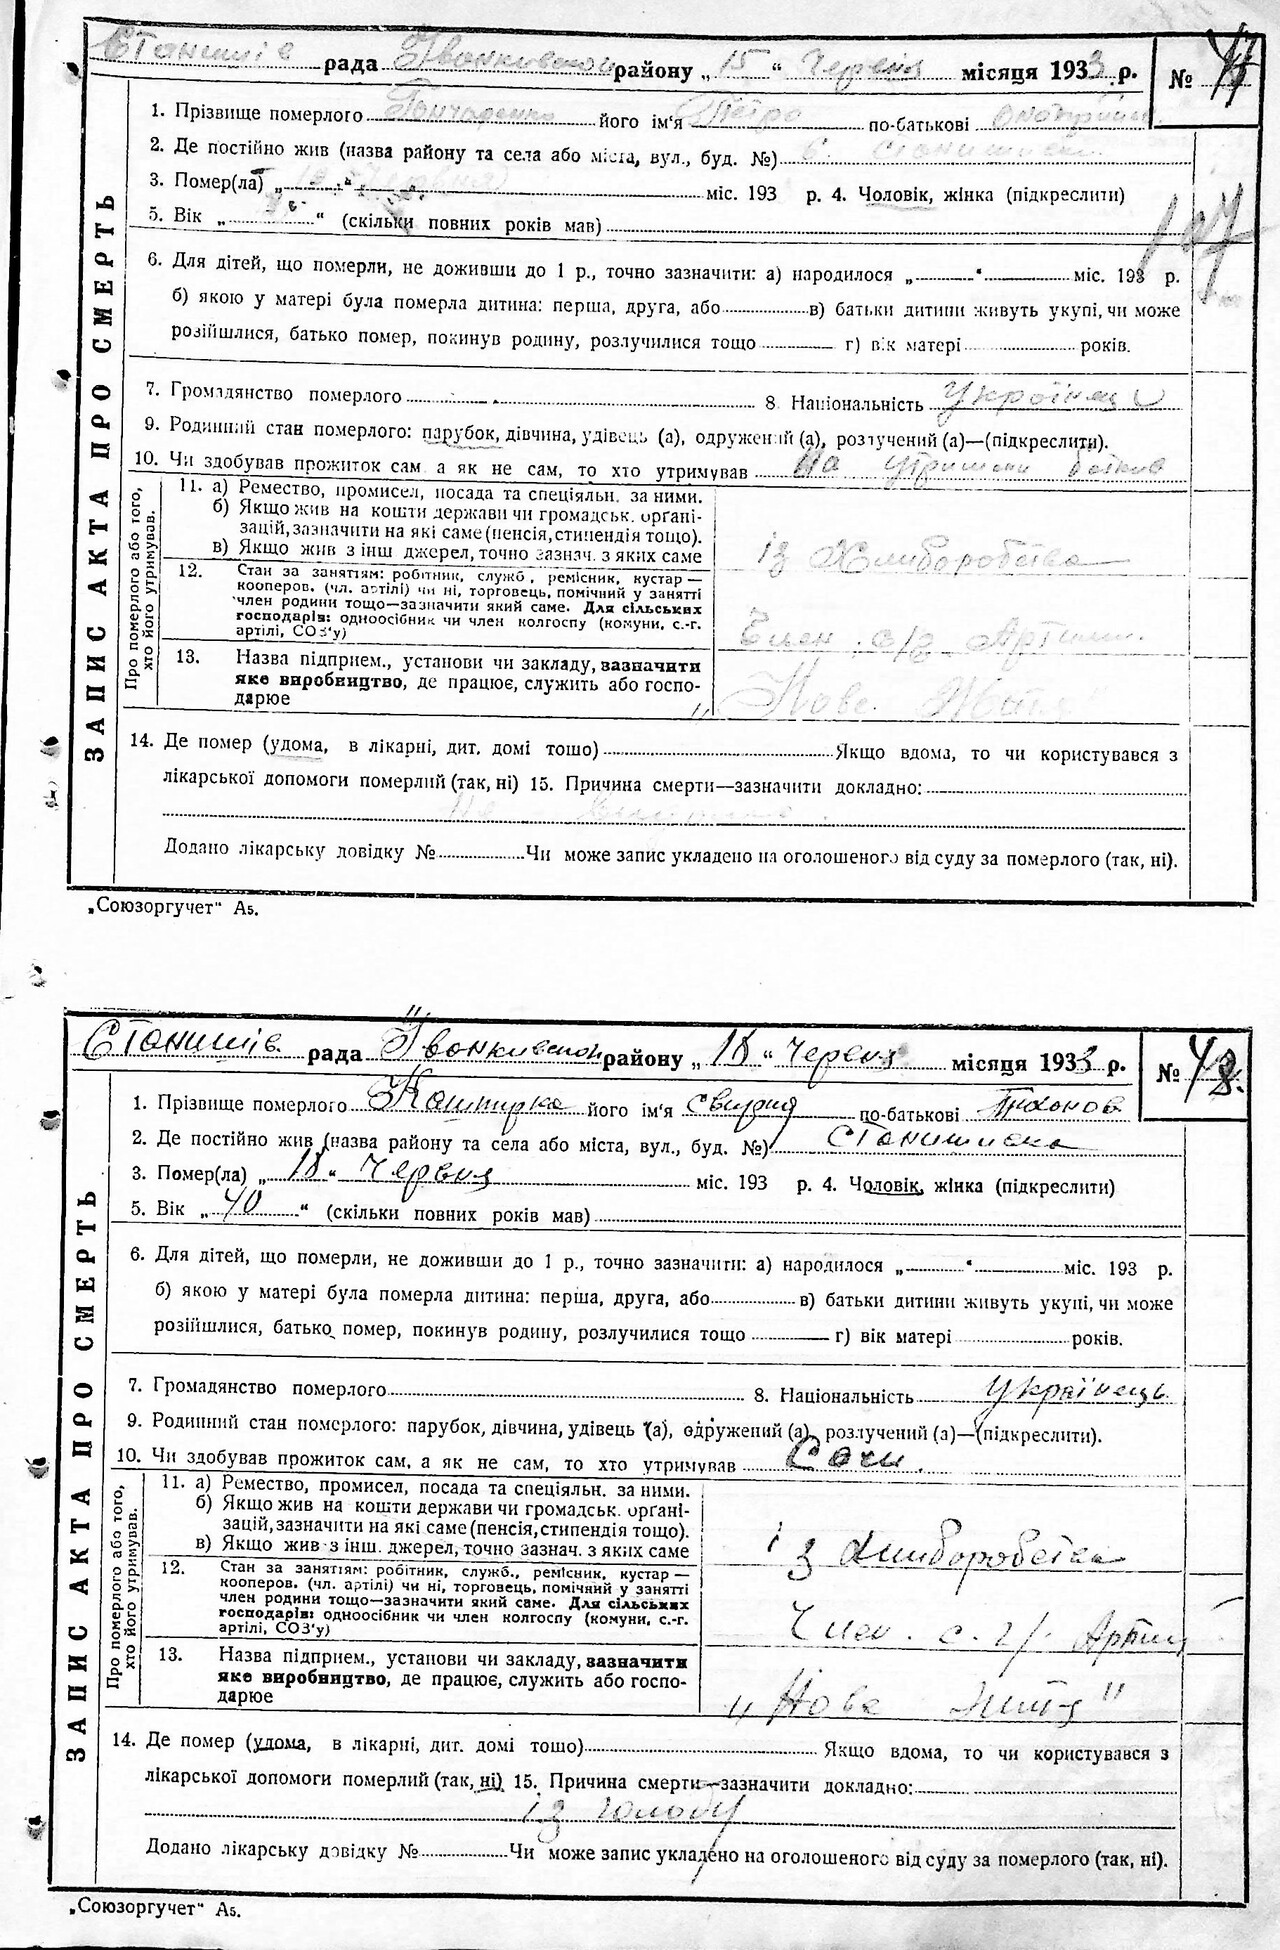 Станишів рада Іванківського району „ 15 “ Червня місяця 1933 р. №
1. Прізвище померлого Гончаренко його ім'я Петро по-батькові
2. Де постійно жив (назва району та села або міста, вул., буд. №) с.
3. Помер(ла) „ “ Червня міс. 193 р. 4. Чоловік, жінка (підкреслити)
5. Вік „ “ (скільки повних років мав)
107
6. Для дітей, що померли, не доживши до 1 р., точно зазначити: а) народилося „ “ міс. 193 р.
б) якою у матері була померла дитина: перша, друга, або в) батьки дитини живуть укупі, чи може
розійшлися, батько помер, покинув родину, розлучилися тощо г) вік матері років.
7. Громадянство померлого 8. Національність Українец
9. Родинний стан померлого: парубок, дівчина, удівець (а), одружений (а), розлучений (а)—(підкреслити).
10. Чи здобував прожиток сам а як не сам, то хто утримував На утримани батьків
Про померлого або того, хто його утримував.
11. а) Ремество, промисел, посада та спеціяльн. за ними.
б) Якщо жив на кошти держави чи громадськ. органі-
зацій, зазначити на які саме (пенсія, стипендія тощо).
в) Якщо жив з інш джерел, точно зазнач. з яких саме
із Хлиборобства
12. Стан за занятіям: робітник, служб., ремісник, кустар —
кооперов. (чл. артілі) чи ні, торговець, помічний у занятті
член родини тощо—зазначити який саме. Для сільських
господарів: одноосібник чи член колгоспу (комуни, с.-г.
артілі, СОЗ'у)
Член с/г Артили
13. Назва підприєм., установи чи закладу, зазначити
яке виробництво, де працює, служить або госпо-
дарює
„Нове Життя"
14. Де помер (удома, в лікарні, дит. домі тошо) Якщо вдома, то чи користувався з
лікарської допомоги померлий (так, ні) 15. Причина смерти—зазначити докладно:
Додано лікарську довідку № Чи може запис укладено на оголошеного від суду за померлого (так, ні).
ЗАПИС АКТА ПРО СМЕРТЬ
„Союзоргучет" А5.
Станишів рада Іванкивскои району „ 18 “ Червня місяця 1933 р. № 48.
1. Прізвище померлого Каштирка його ім'я Свирид по-батькові Тихонов
2. Де постійно жив (назва району та села або міста, вул., буд. №) Станишивка
3. Помер(ла) „ 18 “ Червня міс. 193 р. 4. Чоловік, жінка (підкреслити)
5. Вік „ 40 “ (скільки повних років мав)
6. Для дітей, що померли, не доживши до 1 р., точно зазначити: а) народилося „ “ міс. 193 р.
б) якою у матері була померла дитина: перша, друга, або в) батьки дитини живуть укупі, чи може
розійшлися, батько помер, покинув родину, розлучилися тощо г) вік матері років.
7. Громадянство померлого 8. Національність Українець
9. Родинний стан померлого: парубок, дівчина, удівець (а), одружений (а), розлучений (а)—(підкреслити).
10. Чи здобував прожиток сам, а як не сам, то хто утримував Сам.
Про померлого або того, хто його утримував.
11. а) Ремество, промисел, посада та спеціяльн. за ними.
б) Якщо жив на кошти держави чи громадськ. органі-
зацій, зазначити на які саме (пенсія, стипендія тощо).
в) Якщо жив з інш. джерел, точно зазнач. з яких саме
із Хлиборобства
12. Стан за занятіям: робітник, служб., ремісник, кустар —
кооперов. (чл. артілі) чи ні, торговець, помічний у занятті
член родини тощо—зазначити який саме. Для сільських
господарів: одноосібник чи член колгоспу (комуни, с.-г.
артілі, СОЗ'у)
Член с. г. Артил
13. Назва підприєм., установи чи закладу, зазначити
яке виробництво, де працює, служить або госпо-
дарює
„Нове життя"
14. Де помер (удома, в лікарні, дит. домі тошо) Якщо вдома, то чи користувався з
лікарської допомоги померлий (так, ні) 15. Причина смерти—зазначити докладно:
із голоду
Додано лікарську довідку № Чи може запис укладено на оголошеного від суду за померлого (так, ні).
ЗАПИС АКТА ПРО СМЕРТЬ
„Союзоргучет" А5.